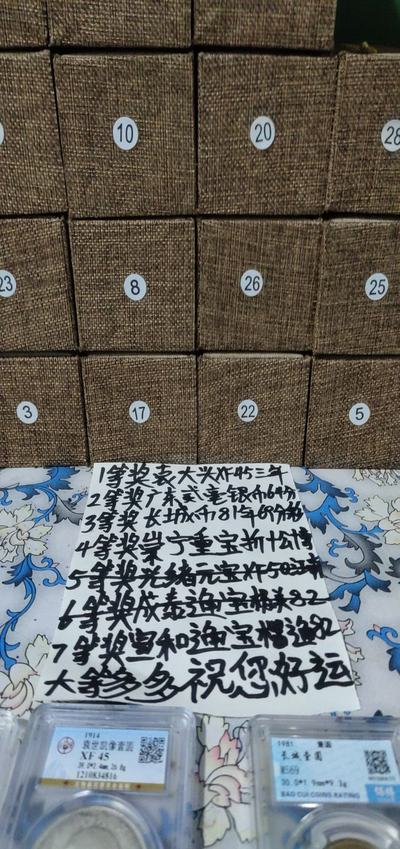 10
20
28
23
8
26
25
3
17
22
5
1等奖袁大头XF45三年
2等奖广东贰毫银币64分
3等奖长城币81年69分
4等奖崇宁重宝折十
5等奖光绪元宝XF50
6等奖咸泰通宝精美82
7等奖宣和通宝楷通82
大等多多祝您好运
1914
袁世凯像壹圆
XF 45
1210834816
1981. 壹圆
长城壹圆
MS69
30.0*1.9mm*9.3g
BAO CUI COINS RATING